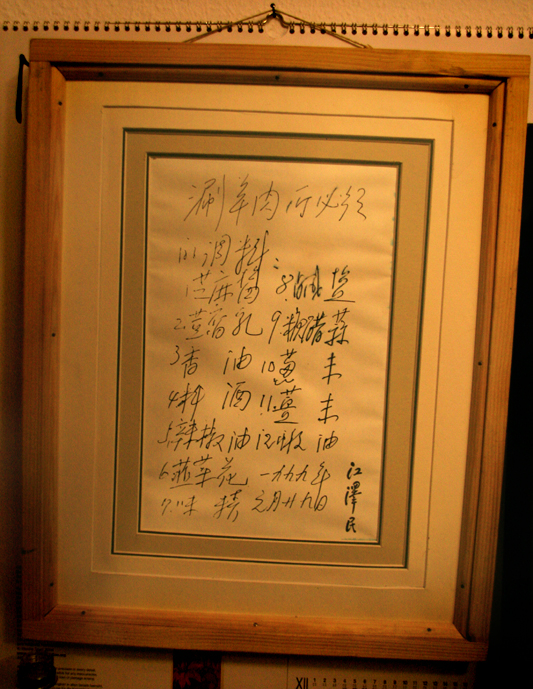 涮羊肉所必须
的调料:
1芝麻酱 8.鹹盐
2荳腐乳 9糖醋蒜
3香油 10葱末
4料酒 11姜末
5辣椒油 12 油
6韮菜花 一九九年
7.味精 元月廿九日
江澤民
XII